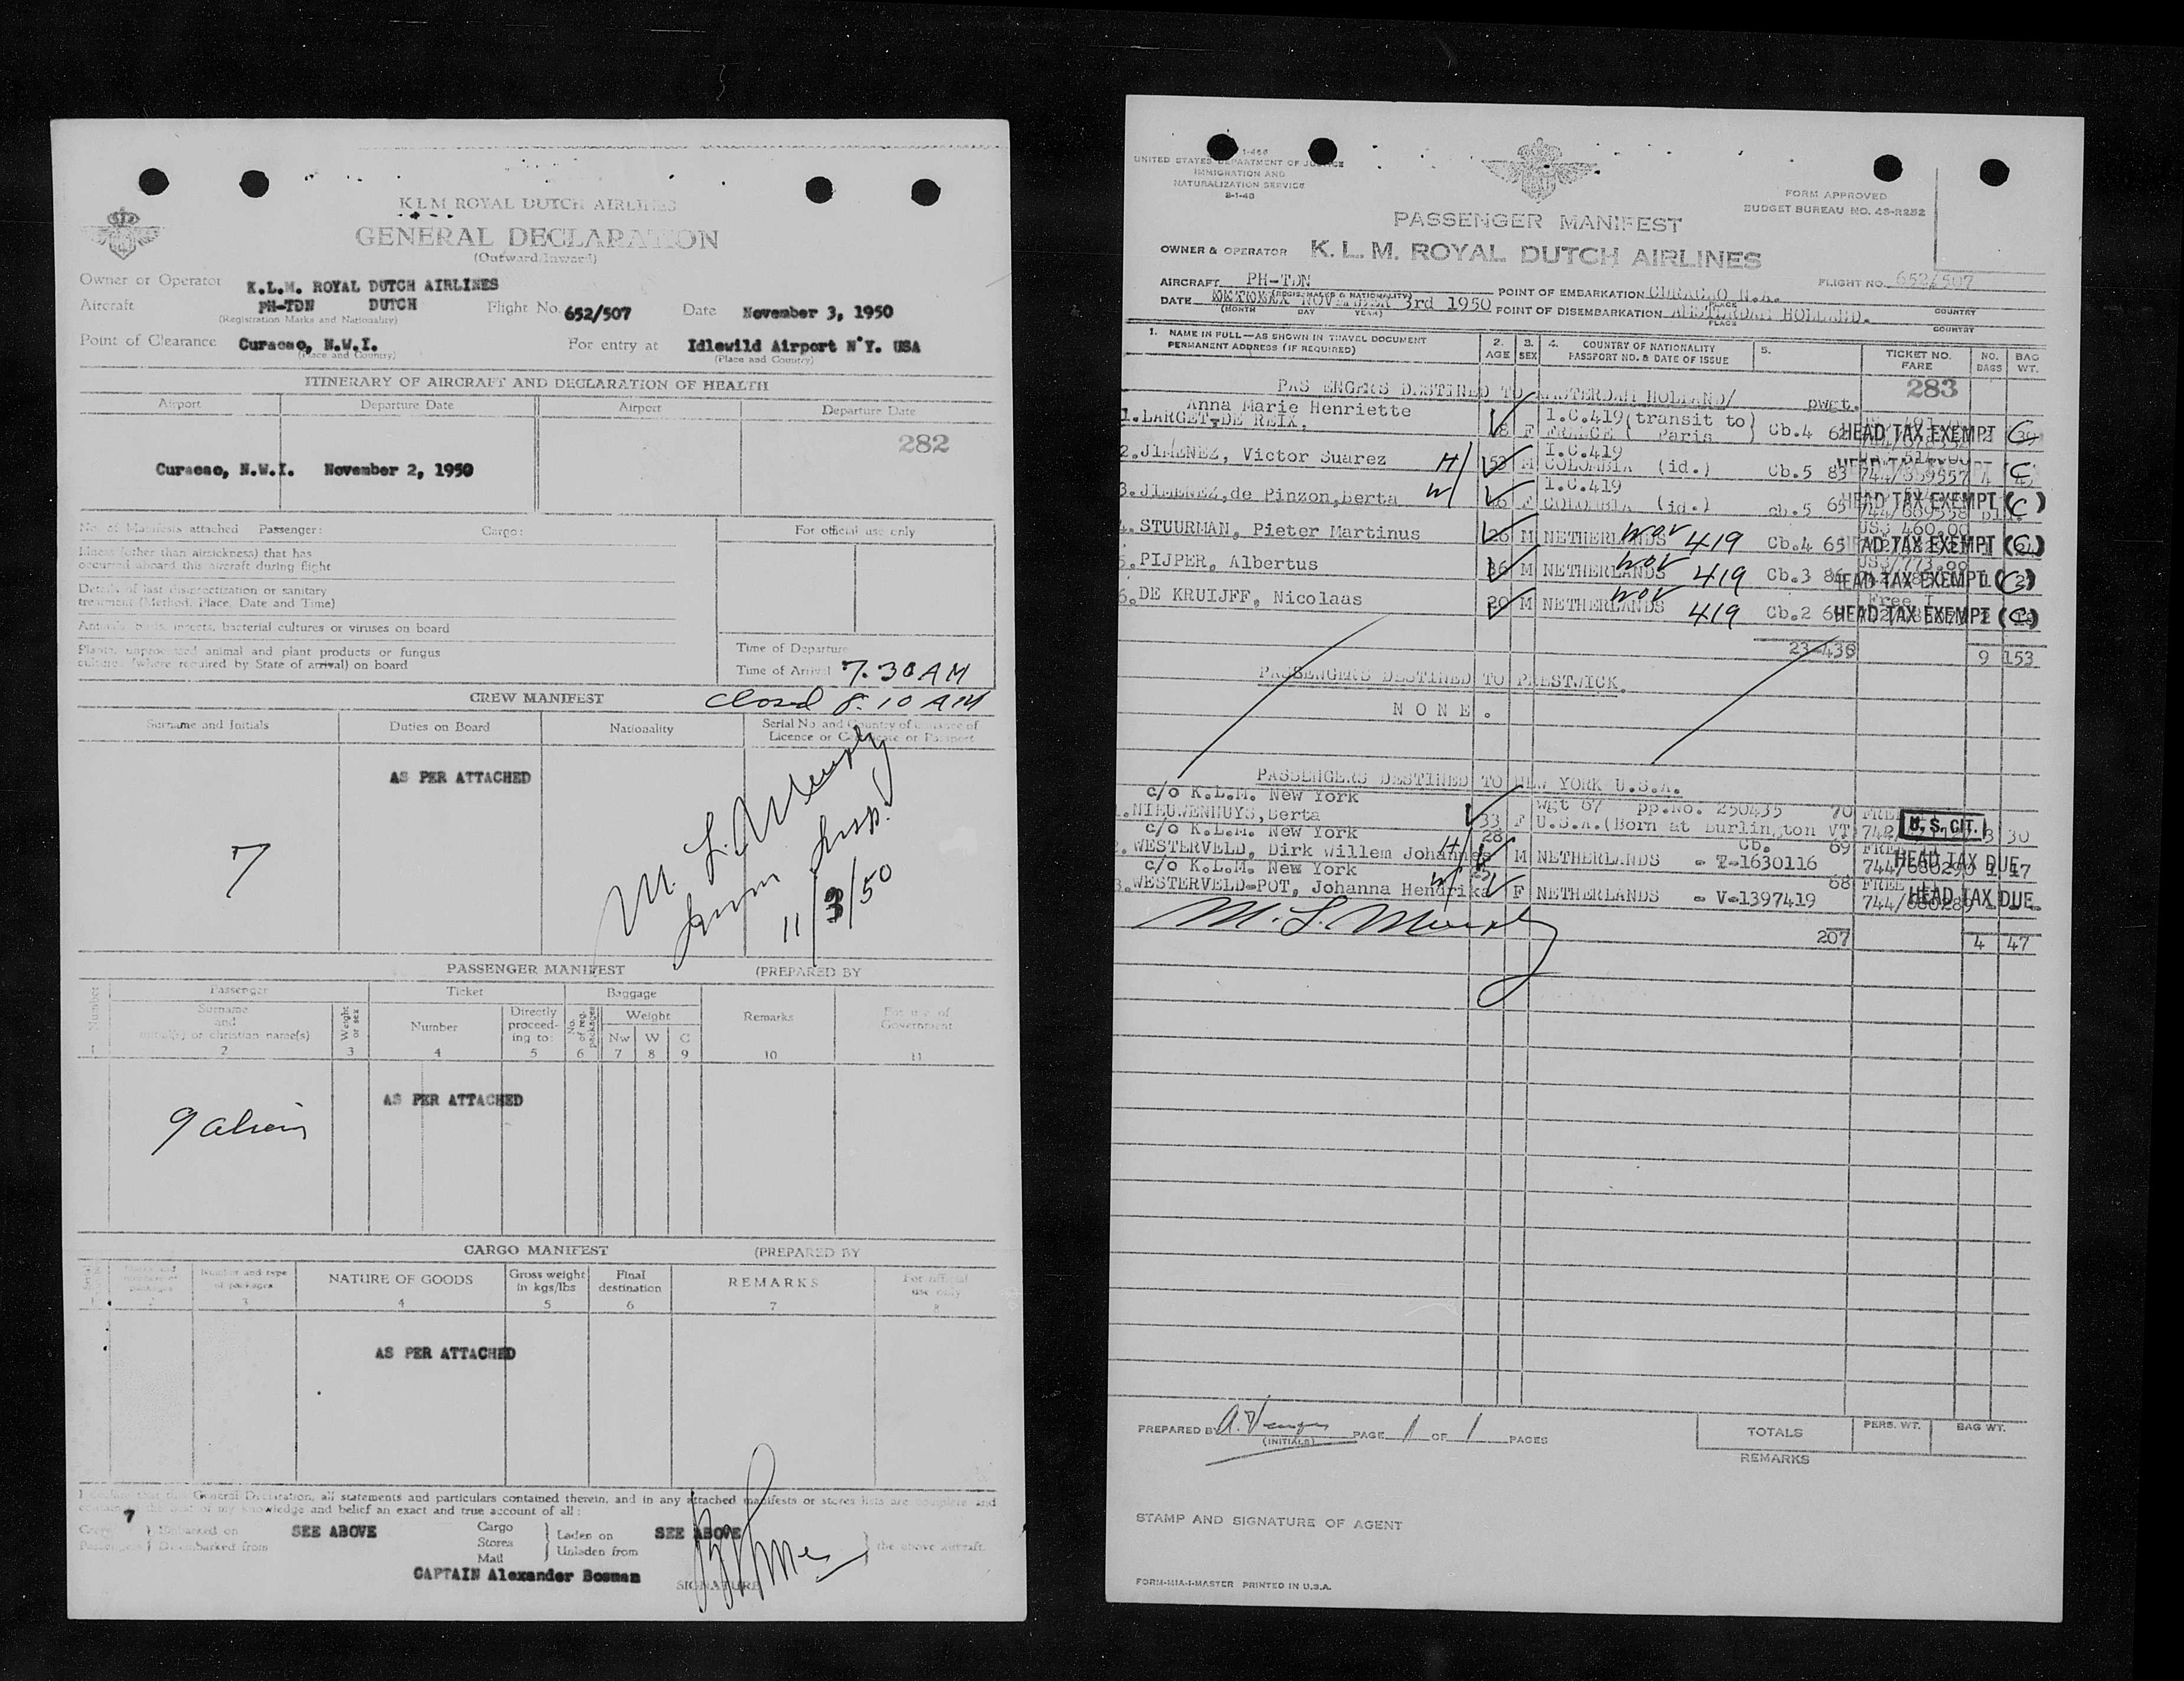 K.L.M. ROYAL DUTCH AIRLINES
GENERAL DECLARATION
(Outward/Inward)
Owner or Operator K.L.M. ROYAL DUTCH AIRLINES
Aircraft PH-TDN DUTCH Flight No. 652/507 Date November 3, 1950
(Registration Marks and Nationality)
Point of Clearance Curacao, N.W.I. For entry at Idlewild Airport N.Y. USA
(Place and Country) (Place and Country)
ITINERARY OF AIRCRAFT AND DECLARATION OF HEALTH
Airport Departure Date Airport Departure Date
282
Curacao, N.W.I. November 2, 1950
No. of Manifests attached Passenger: Cargo: For official use only
Illness (other than airsickness) that has
occurred aboard this aircraft during flight
Details of last disinsectization or sanitary
treatment (Method, Place, Date and Time)
Animals, birds, insects, bacterial cultures or viruses on board
Plants, unprocessed animal and plant products or fungus
cultures (where required by State of arrival) on board
Time of Departure
Time of Arrival 7.30 AM
closed 8.10 AM
CREW MANIFEST
Surname and Initials Duties on Board Nationality Serial No. and Country of Issuance of
Licence or Certificate or Passport
AS PER ATTACHED
7
M. L. Murphy
Imm Insp.
11/3/50
PASSENGER MANIFEST (PREPARED BY
Number Passenger Ticket Baggage Remarks For use of Government
Surname and initial(s) or christian name(s) Weight or sex Number Directly proceeding to: No. of reg. packages Weight
Nw W C
1 2 3 4 5 6 7 8 9 10 11
AS PER ATTACHED
9 aliens
CARGO MANIFEST (PREPARED BY
Number and type of packages NATURE OF GOODS Gross weight in kgs/lbs Final destination REMARKS For official use only
1 2 3 4 5 6 7 8
AS PER ATTACHED
I declare that this General Declaration, all statements and particulars contained therein, and in any attached manifests or stores lists are complete and
contain to the best of my knowledge and belief an exact and true account of all:
7
Crew Embarked on SEE ABOVE Cargo Laden on SEE ABOVE
Passengers Disembarked from Stores Unladen from the above aircraft.
Mail
CAPTAIN Alexander Bosman SIGNATURE
I-466
UNITED STATES DEPARTMENT OF JUSTICE
IMMIGRATION AND
NATURALIZATION SERVICE
2-1-48
FORM APPROVED
BUDGET BUREAU NO. 43-R252
PASSENGER MANIFEST
OWNER & OPERATOR K. L. M. ROYAL DUTCH AIRLINES
AIRCRAFT PH-TDN POINT OF EMBARKATION CURACAO N.A. FLIGHT NO. 652/507
(REGIS. MARKS & NATIONALITY) PLACE COUNTRY
DATE NOVEMBER 3rd 1950 POINT OF DISEMBARKATION AMSTERDAM HOLLAND.
(MONTH DAY YEAR) PLACE COUNTRY
1. NAME IN FULL—AS SHOWN IN TRAVEL DOCUMENT
PERMANENT ADDRESS (IF REQUIRED)
2. AGE 3. SEX 4. COUNTRY OF NATIONALITY
PASSPORT NO. & DATE OF ISSUE 5. TICKET NO. FARE NO. BAGS BAG WT.
283
PASSENGERS DESTINED TO AMSTERDAM HOLLAND/ pwgt.
Anna Marie Henriette I.C.419(transit to)
1.LARGET-DE REIX, F FRANCE ( Paris ) Cb.4 HEAD TAX EXEMPT (C)
I.C.419
2.JIMENEZ, Victor Suarez H 53 M COLOMBIA (id.) Cb.5 83 744/ HEAD TAX EXEMPT (C)
I.C.419
3.JIMENEZ,de Pinzon,Berta W F COLOMBIA (id.) cb.5 65 HEAD TAX EXEMPT (C)
US$ 460.00
4.STUURMAN, Pieter Martinus 26 M NETHERLANDS NOV 419 Cb.4 65 HEAD TAX EXEMPT (C)
5.PIJPER, Albertus 36 M NETHERLANDS NOV 419 Cb.3 86 HEAD TAX EXEMPT (C)
Free
6.DE KRUIJFF, Nicolaas 20 M NETHERLANDS NOV 419 Cb.2 HEAD TAX EXEMPT (C)
23-436 9 153
PASSENGERS DESTINED TO PRESTWICK.
N O N E .
PASSENGERS DESTINED TO NEW YORK U.S.A.
c/o K.L.M. New York wgt 67 pp.No. 250435 70 FREE
1.NIEUWENHUYS,Berta 33 F U.S.A.(Born at Burlington VT) U. S. CIT. 3 30
c/o K.L.M. New York 28 Cb. 69 FREE
2.WESTERVELD, Dirk Willem Johannes H M NETHERLANDS - T-1630116 744/680290 HEAD TAX DUE 1 17
c/o K.L.M. New York 68 FREE
3.WESTERVELD-POT, Johanna Hendrika W F NETHERLANDS - V-1397419 744/680289 HEAD TAX DUE
M. L. Murphy
207 4 47
PREPARED BY (INITIALS) PAGE 1 OF 1 PAGES
TOTALS PERS. WT. BAG WT.
REMARKS
STAMP AND SIGNATURE OF AGENT
FORM-MIA-I-MASTER PRINTED IN U.S.A.